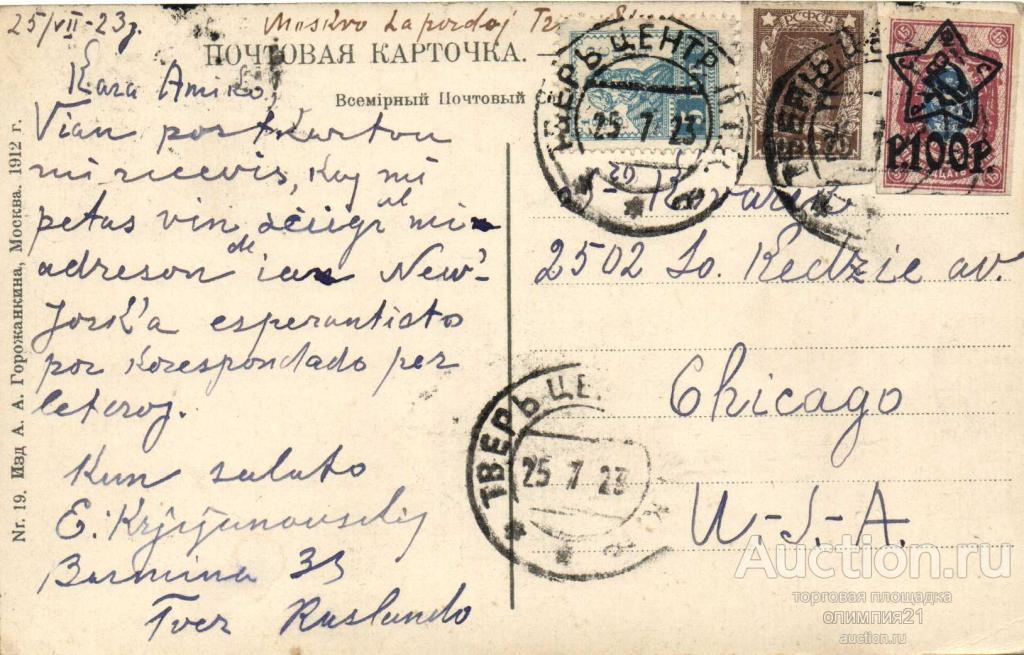 25/VII-23j.
Moskvo La pordoj
ПОЧТОВАЯ КАРТОЧКА.
Всемірный Почтовый
Kara Amiko,
Vian postkarton
mi ricevis, kaj mi
petas vin sciigi al mi
adreson de ian New-
Jork'a esperantisto
por korespondado per
leteroj.
Kun saluto
E. Krjijanovskij
Barmina 33
Tver Ruslando
Nr. 19. Изд А. А. Горожанкина, Москва. 1912 г.
2502 So. Kedzie av.
Chicago
U-S-A.
ТВЕРЬ ЦЕНТР
25 7 23
РСФСР
15
15
Р.100Р.
ТВЕРЬ ЦЕ
25 7 23
Auction.ru
торговая площадка
олимпия21
auction.ru